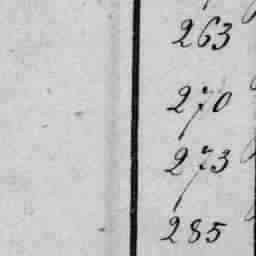 263
270
273
285